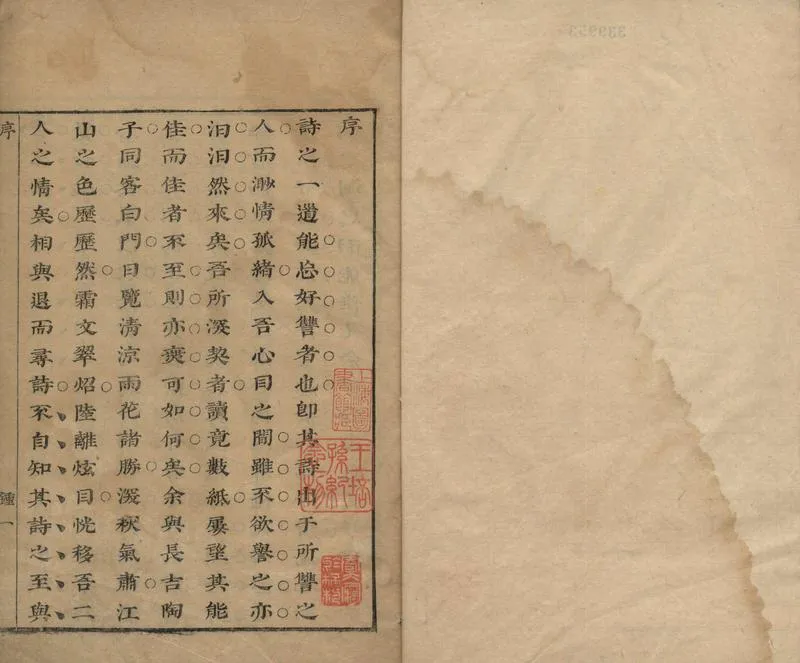 序
詩之一道能忘好讐者也卽其詩出于所讐之
人而渺情孤緒入吾心目之間雖不欲譽之亦
汩汩然來矣吾所深契者讀竟數紙屢望其能
佳而佳者不至則亦衰可如何矣余與長吉陶
子同客白門日覽清凉雨花諸勝深秋氣肅江
山之色歷歷然霜文翠炤陸離炫目恍移吾二
人之情矣相與退而尋詩不自知其詩之至與
序
鍾一